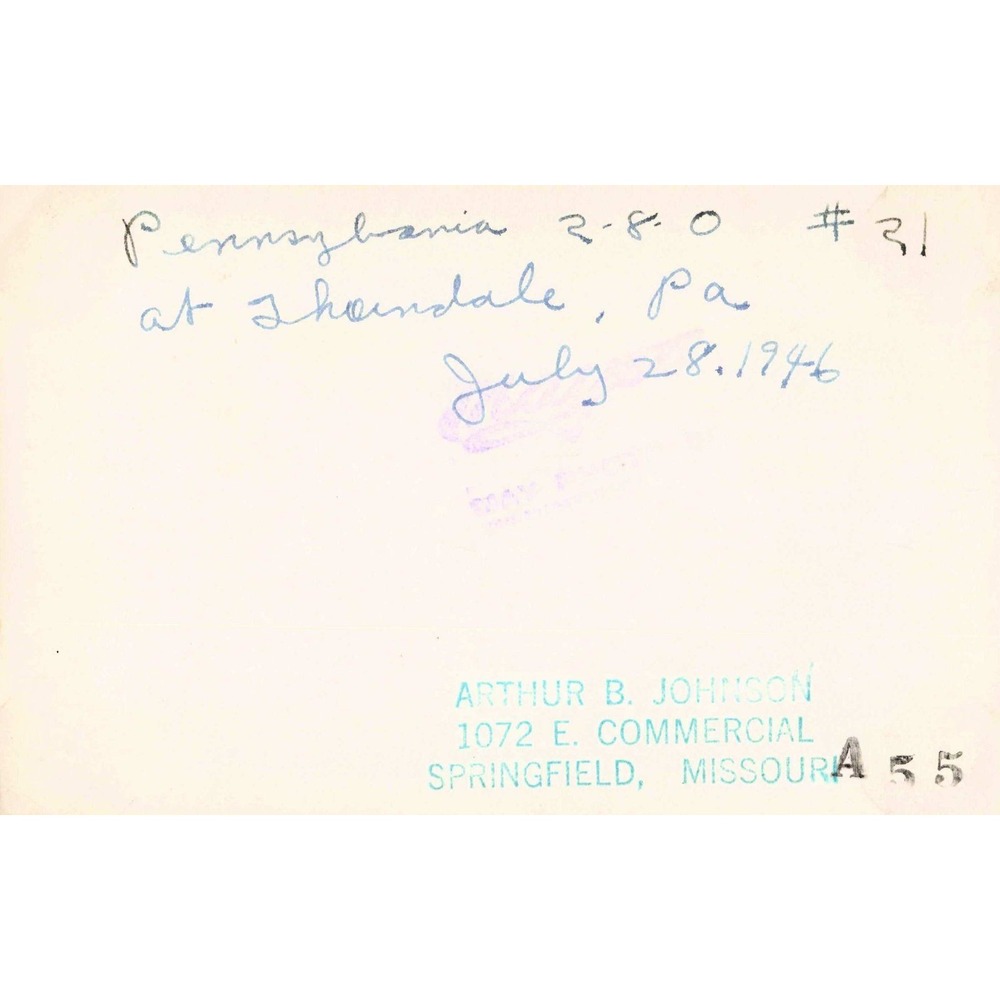 Pennsylvania 2-8-0 #21
at Thorndale, Pa
July 28. 1946
ARTHUR B. JOHNSON
1072 E. COMMERCIAL
SPRINGFIELD, MISSOURI
A 55